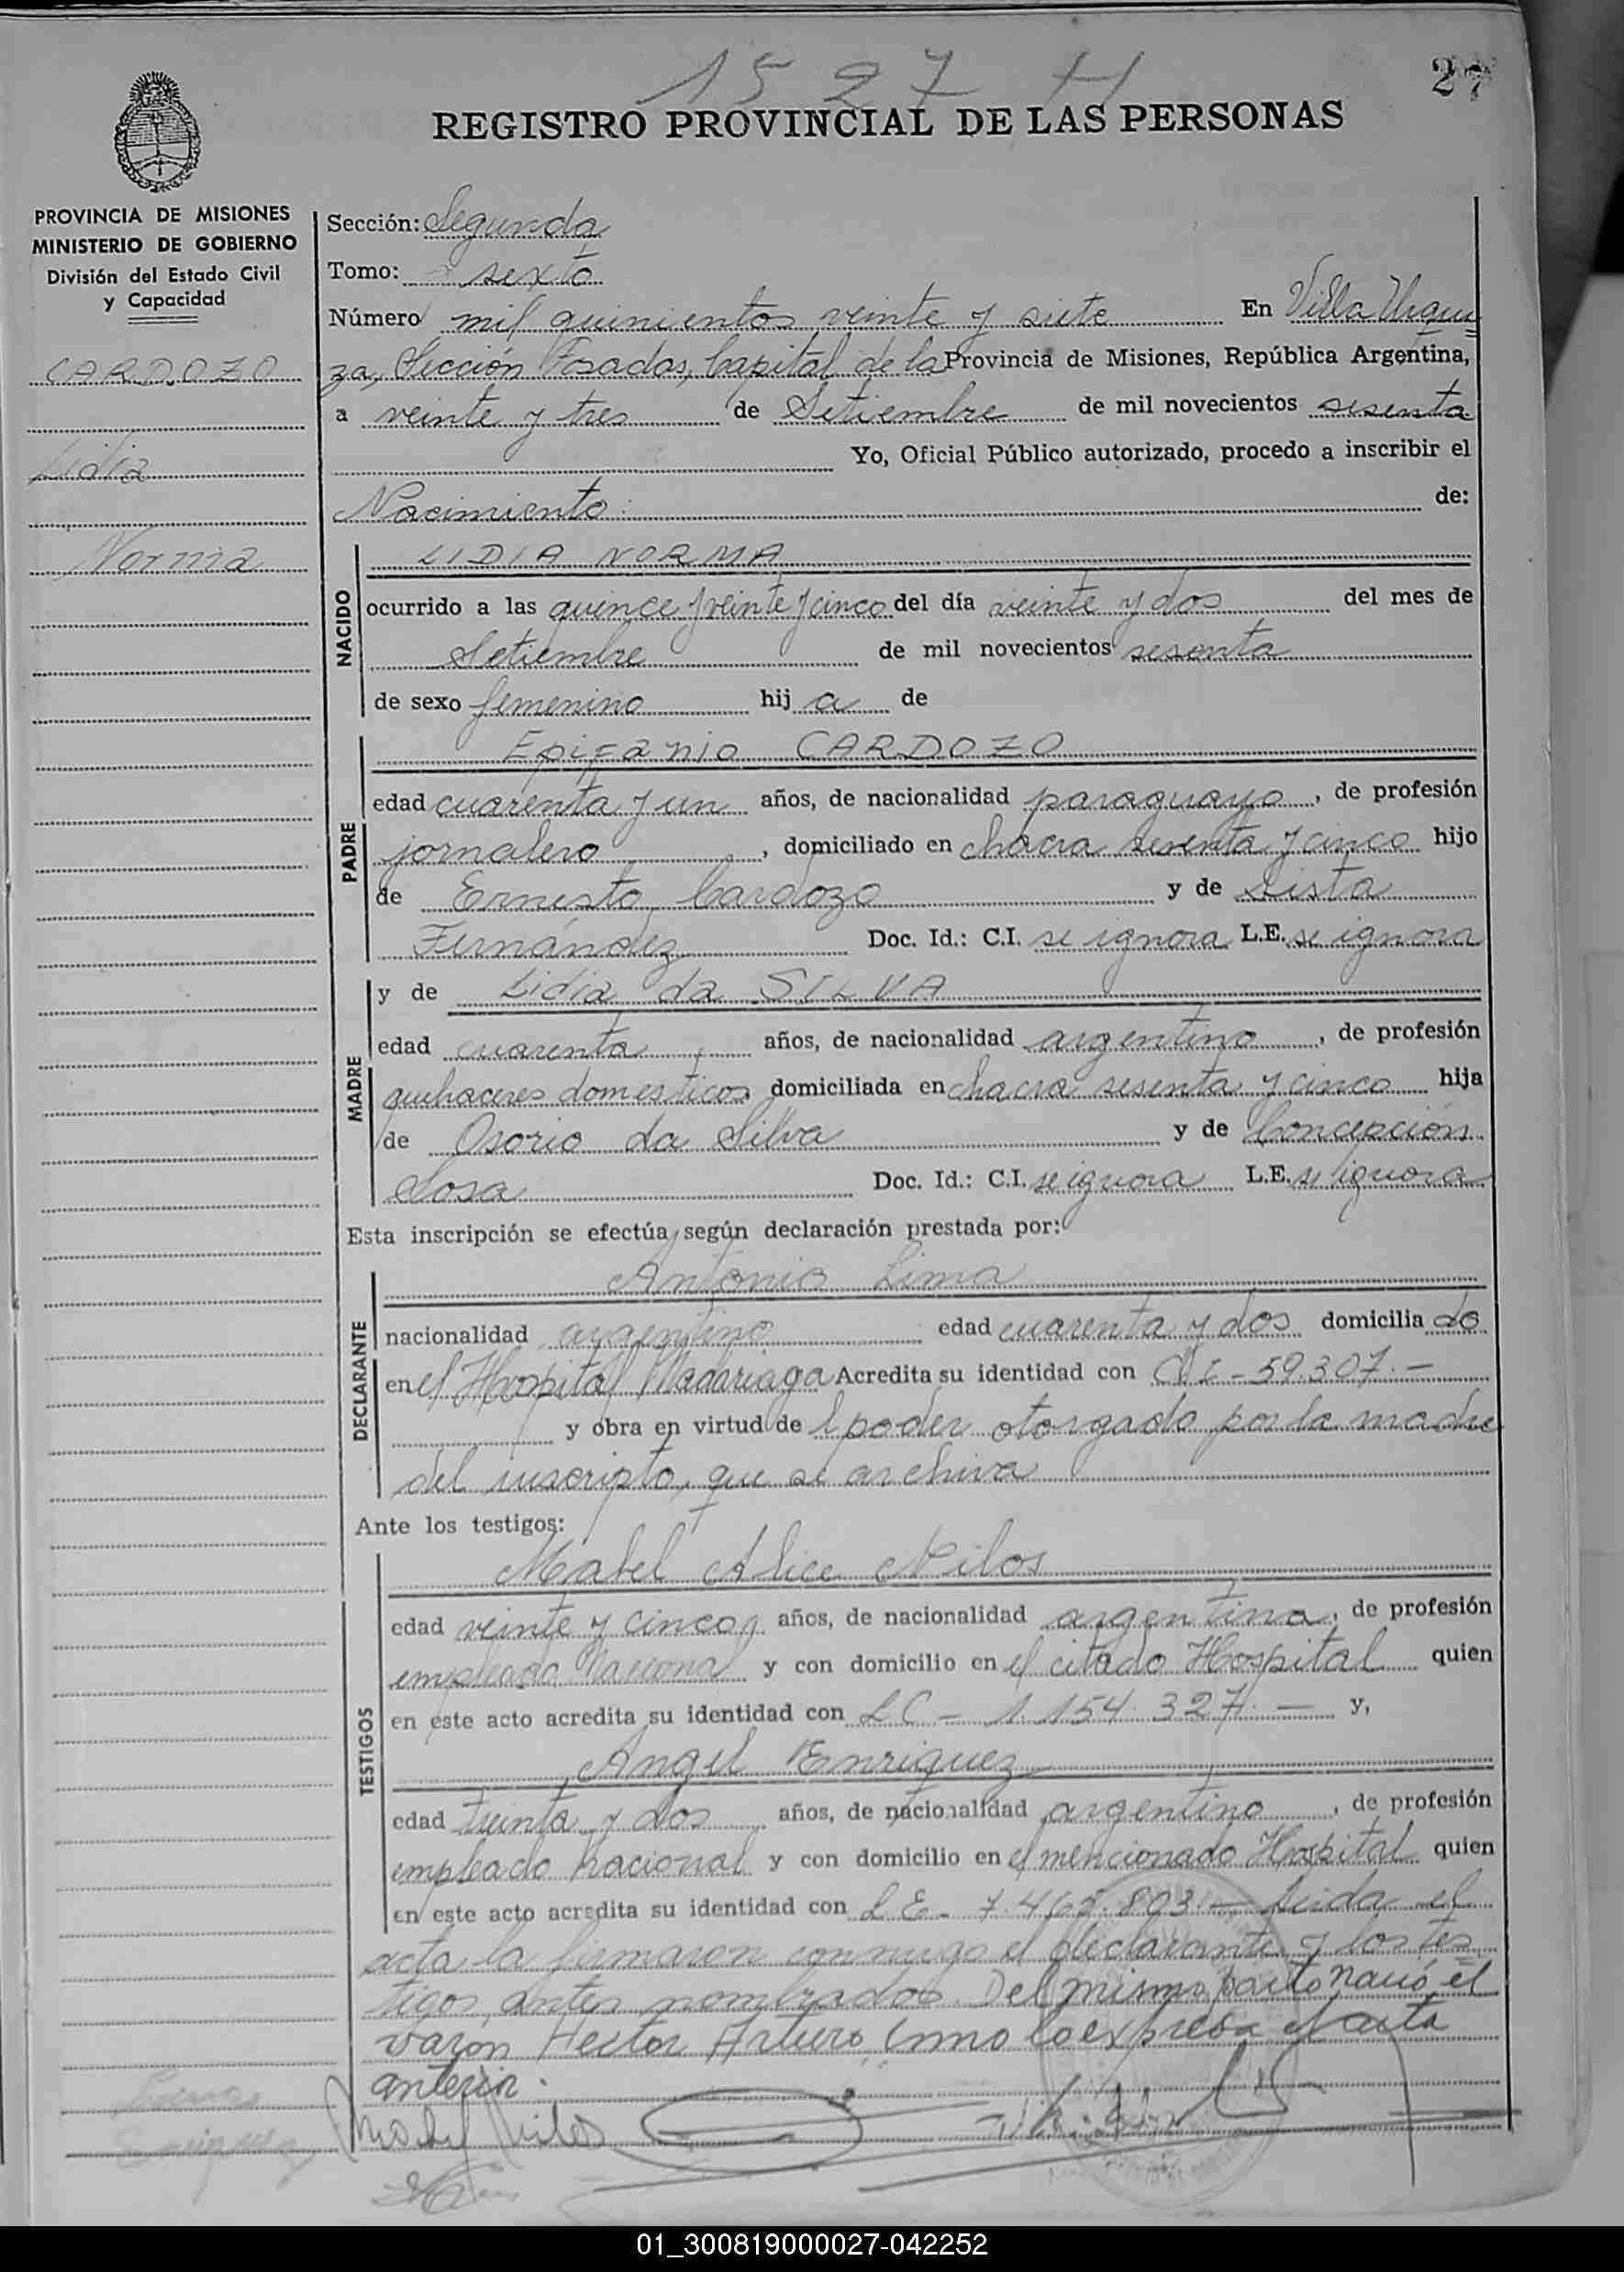 1527 H
27
REGISTRO PROVINCIAL DE LAS PERSONAS
PROVINCIA DE MISIONES
MINISTERIO DE GOBIERNO
División del Estado Civil
y Capacidad
CARDOZO
Lidia
Norma
Sección: Segunda
Tomo: sexto
Número mil quinientos veinte y siete En Villa Urqui=
za, Sección Posadas, Capital de la Provincia de Misiones, República Argentina,
a veinte y tres de Setiembre de mil novecientos sesenta
Yo, Oficial Público autorizado, procedo a inscribir el
Nacimiento de:
NACIDO
LIDIA NORMA
ocurrido a las quince y veinte y cinco del día veinte y dos del mes de
Setiembre de mil novecientos sesenta
de sexo femenino hij a de
PADRE
Epifanio CARDOZO
edad cuarenta y un años, de nacionalidad paraguayo, de profesión
jornalero, domiciliado en chacra sesenta y cinco hijo
de Ernesto Cardozo y de Sista
Fernández Doc. Id.: C.I. se ignora L.E. se ignora
MADRE
y de Lidia da SILVA
edad cuarenta años, de nacionalidad argentino, de profesión
quehaceres domesticos domiciliada en chacra sesenta y cinco hija
de Osorio da Silva y de Concepción
Sosa Doc. Id.: C.I. se ignora L.E. se ignora
Esta inscripción se efectúa según declaración prestada por:
DECLARANTE
Antonio Lima
nacionalidad argentino edad cuarenta y dos domicilia do
en el Hospital Madariaga Acredita su identidad con CI - 59.307.-
y obra en virtud de l poder otorgado por la madre
del inscripto, que se archiva
Ante los testigos:
TESTIGOS
Mabel Alice Nilos
edad veinte y cinco años, de nacionalidad argentina, de profesión
empleada Nacional y con domicilio en el citado Hospital quien
en este acto acredita su identidad con LC - 1.154.327.- y,
Angel Enriquez
edad treinta y dos años, de nacionalidad argentino, de profesión
empleado nacional y con domicilio en el mencionado Hospital quien
en este acto acredita su identidad con LE - 7.465.803.- Leida el
acta la firmaron conmigo el declarante y los tes=
tigos antes nombrados. Del mismo parto nació el
varon Hector Arturo como lo expresa el acta
anterior.
Mabel Nilos
01_300819000027-042252